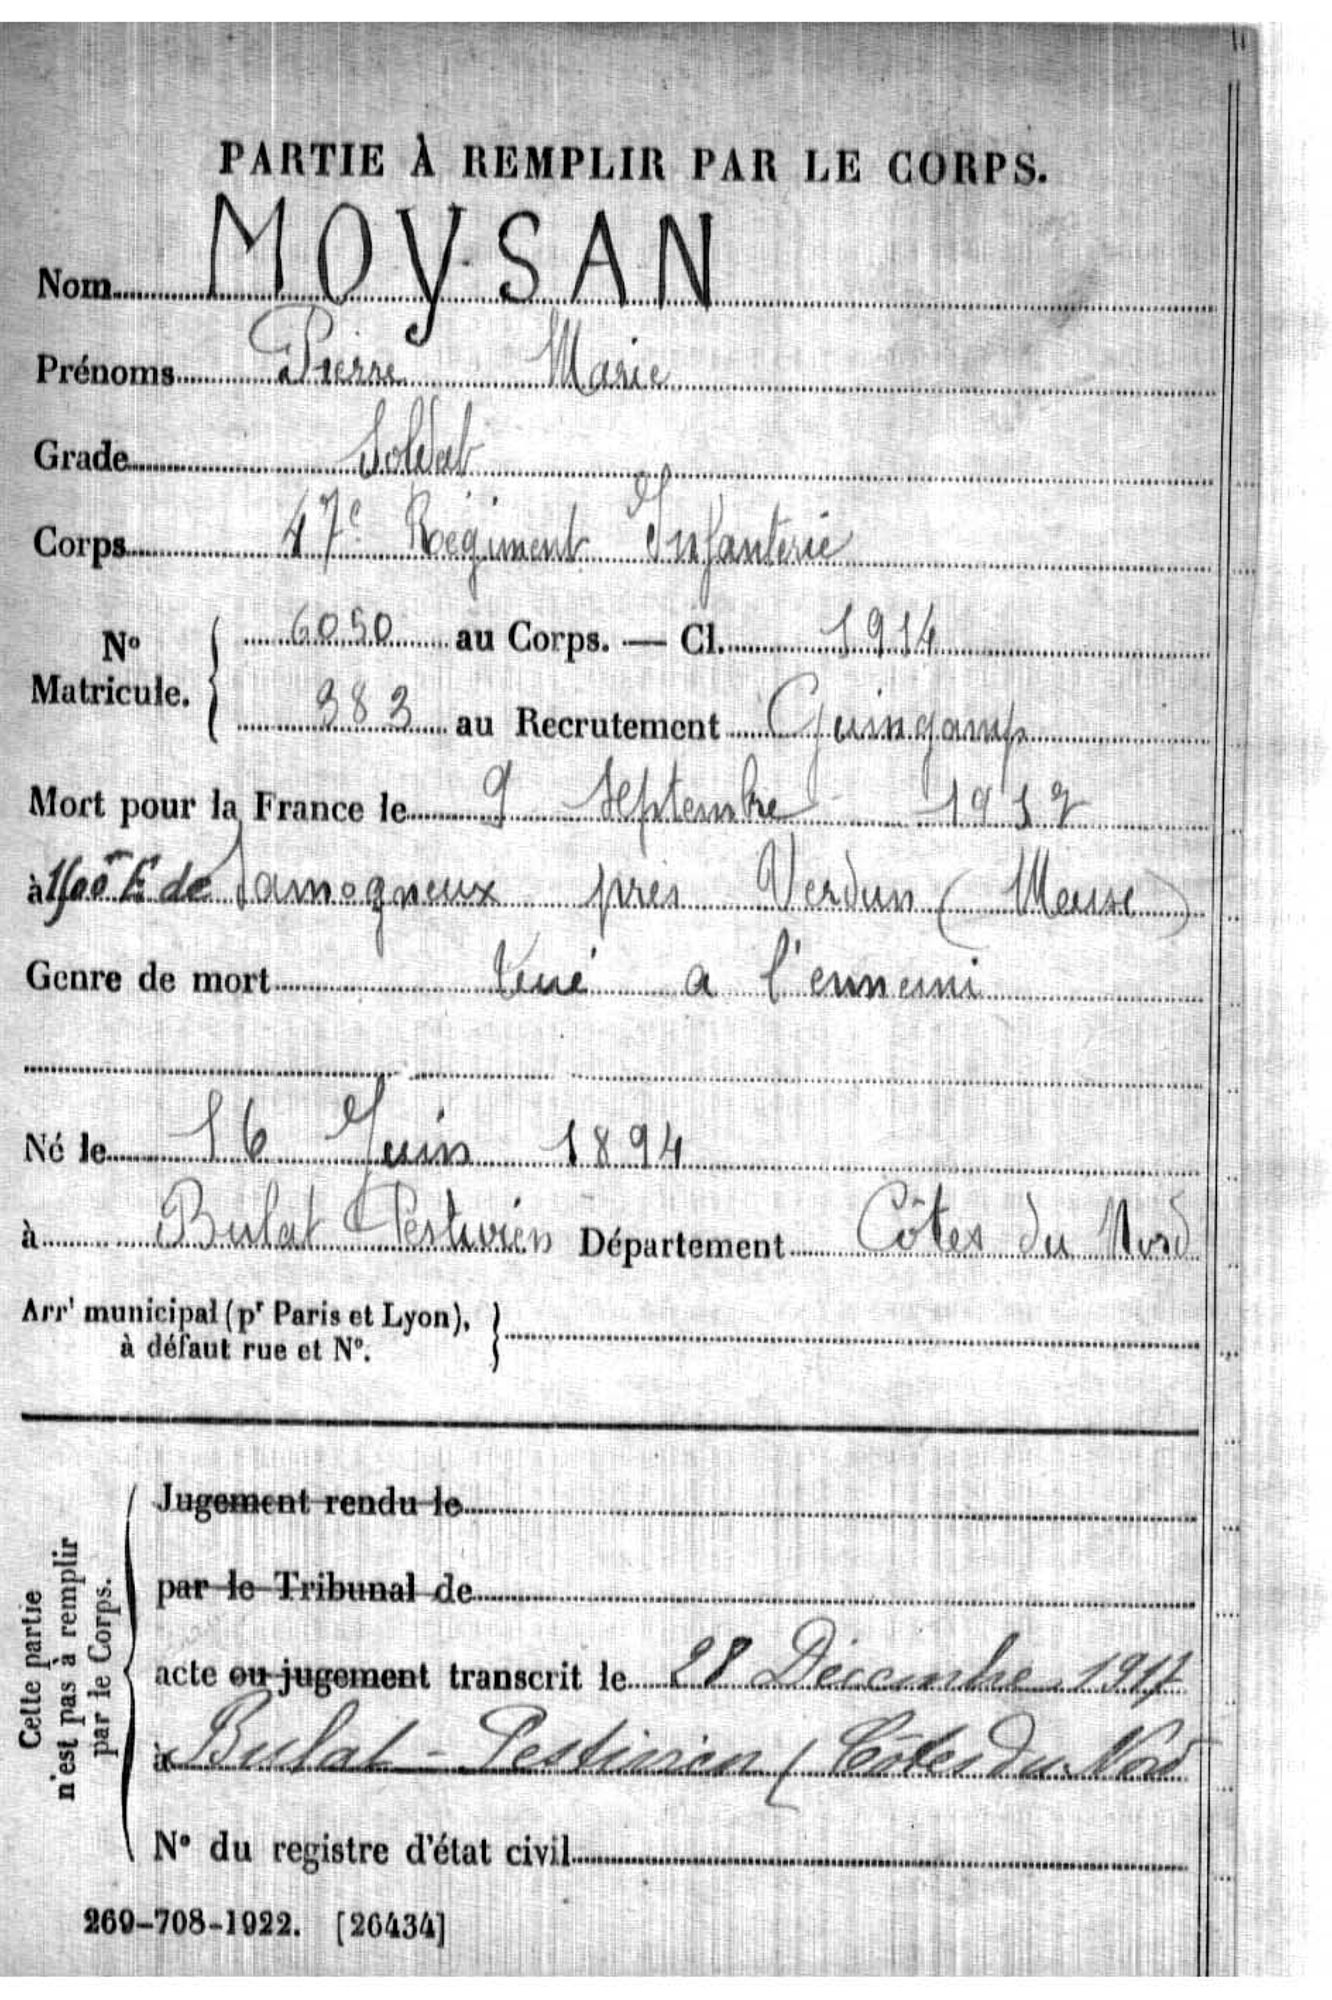 PARTIE À REMPLIR PAR LE CORPS.
Nom MOYSAN
Prénoms Pierre Marie
Grade Soldat
Corps 47e Régiment Infanterie
No Matricule. 6050 au Corps. — Cl. 1914
383 au Recrutement Guingamp
Mort pour la France le 9 Septembre 1917
à E de Samogneux près Verdun (Meuse)
Genre de mort tué a l'ennemi
Né le 16 Juin 1894
à Bulat Pestivien Département Côtes du Nord
Arrt municipal (pr Paris et Lyon),
à défaut rue et No.
Cette partie
n'est pas à remplir
par le Corps.
Jugement rendu le
par le Tribunal de
acte ou jugement transcrit le 28 Décembre 1917
à Bulat-Pestivien (Côtes du Nord
No du registre d'état civil
269-708-1922. [26434]